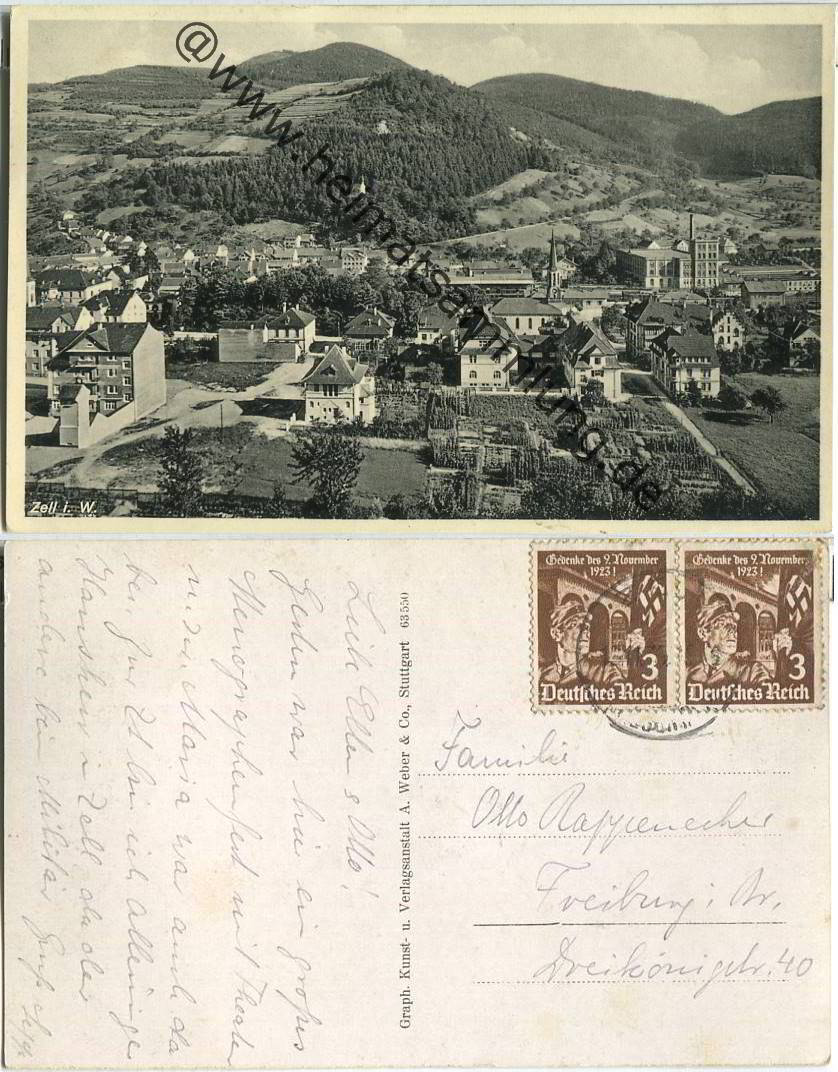 @www.heimatsammlung.de
Zell i. W.
Liebe Ellen & Otto!
Gestern war hier ein großes
Stenographenfest mit Theater
Maria war auch da
bei
in Zell
andere bei Militär Gruß
Graph. Kunst- u. Verlagsanstalt A. Weber & Co., Stuttgart 63550
Gedenke des 9. November
1923!
3
Deutsches Reich
Gedenke des 9. November
1923!
3
Deutsches Reich
Familie
Otto Rappenecker
Freiburg i. Br.
Dreikönigstr. 40